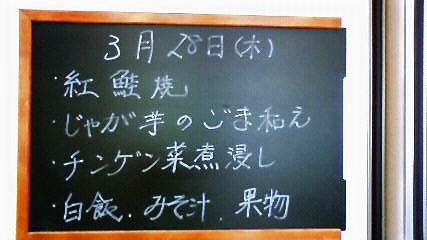 3月28日(木)
・紅鮭焼
・じゃが芋のごま和え
・チンゲン菜煮浸し
・白飯．みそ汁．果物